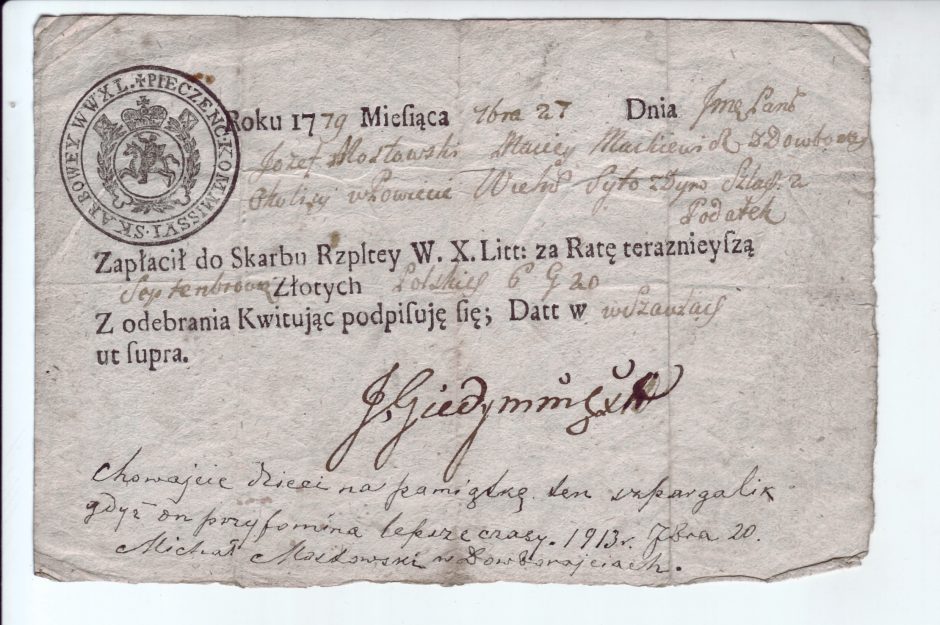 ✝PIECZĘC·KOMMISSYI·SKARBOWEY W W X L.
Roku 1779 Mieſiąca 7bra 27 Dnia Jmę Pan
Jozef Mostowski Maciey Mackiewicz z Dowborow
Okolicy w Powiecie
Podatek
Zapłacił do Skarbu Rzpltey W. X. Litt: za Ratę teraznieyſzą
Septembrową Złotych Polskich 6 G 20
Z odebrania Kwituiąc podpiſuję ſię; Datt w
ut ſupra.
chowajcie dzieci na pamiątkę ten szpargalik
gdyż on przypomina lepsze czasy. 1913 r. 7bra 20.
Michał Mostowski w Dowborajciach.